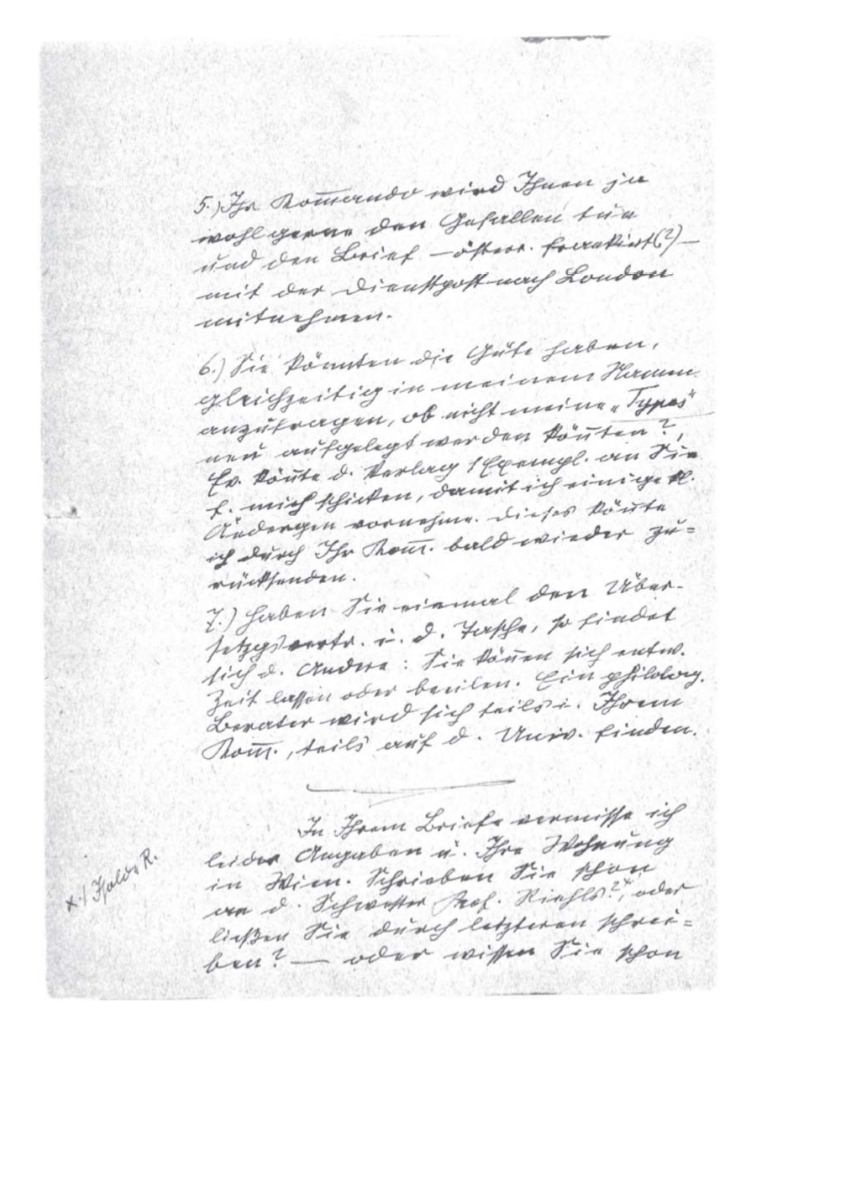 5.) Ihr Kom̅ando wird Ihnen ja
wohl gerne den Gefallen tun
und den Brief – österr. frankiert(?) –
mit der Dienstpost nach London
mitnehmen.
6.) Sie könnten die Güte haben,
gleichzeitig in meinem Namen
anzufragen, ob nicht meine „Types"
neu aufgelegt werden kön̅ten?,
Ev. kön̅te d. Verlag 1 Exempl. an Sie
f. mich schicken, damit ich einige kl.
Ändergen vornehme. Dieses kön̅te
ich durch Ihr Kom̅. bald wieder zu=
rücksenden.
7.) Haben Sie einmal den Über-
setzgsvertr. i. d. Tasche, so findet
sich d. Andre: Sie kön̅en sich entw.
Zeit lassen oder beeilen. Ein philolog.
Berater wird sich teils i. Ihrem
Kom̅., teils auf d. Univ. finden.
In Ihrem Briefe vermisse ich
leider Angaben ü. Ihre Wohnung
in Wien. Schrieben Sie schon
an d. Schwester Prof. Riehls?ˣ, oder
ließen Sie durch letzteren schrei=
ben? — oder wissen Sie schon
x.) R.